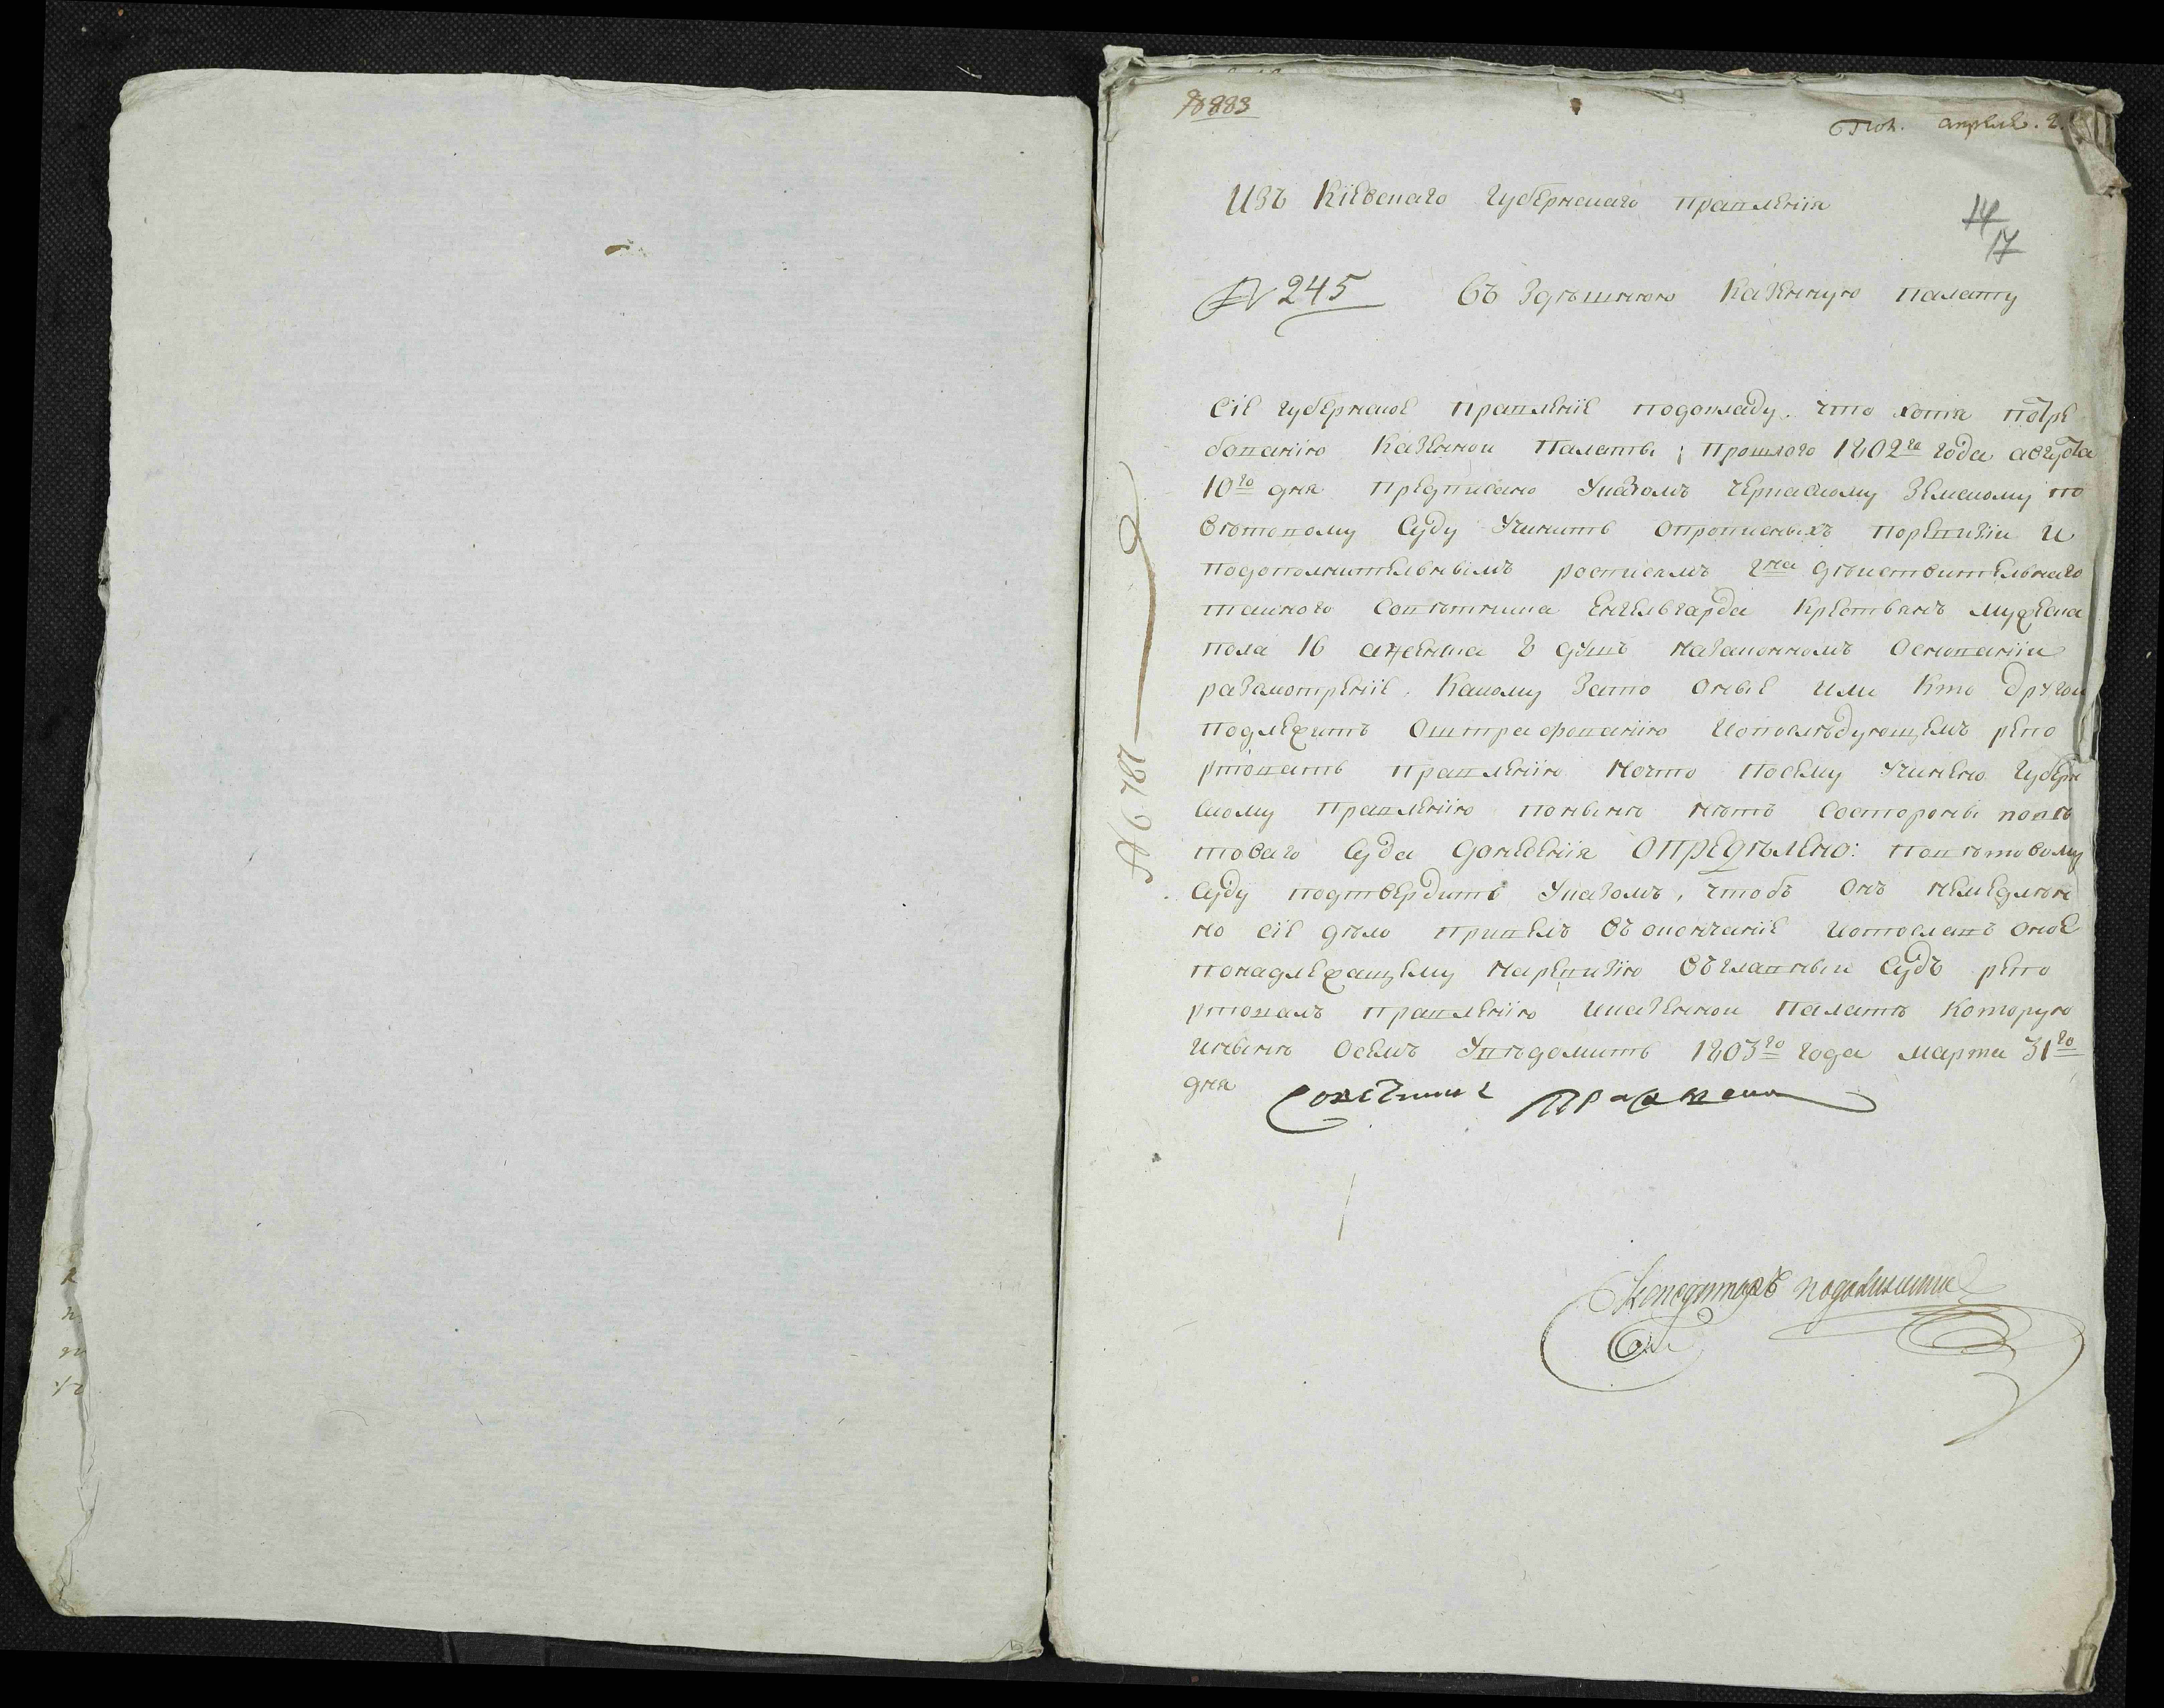 № 883
Пол. апреля. 2.
Изъ Кіевскаго Губернскаго правленія
14
17
№ 245 Въ Здѣшнюю Казенную палату
Сіе Губернское Правленіе подокладу. что хотя потре
бованію Казенной Палаты; Прошлого 1802го года августа
10го дня предписано Указомъ черкаскому Земскому по
вѣтовому Суду Учинить опрописныхъ поревизіи и
подополнительнымъ росписямъ Гна дѣиствительнаго
таиного Советника Енгельгарда Крестьянъ мужеска
пола 16 аженска 8 душъ назаконномъ Основаніи
разсмотреніе. Какому Зато Оные или Кто другои
подлежитъ Оштрафованію Иопослѣдующемъ репо
ртовать правленію Ночто посему Учинено Губерн
скому правленію понынѣ нѣтъ Состороны повѣ
товаго Суда донесенія ОПРЕДѢЛЕНО: Повѣтовому
Суду подтвердить Указомъ, чтобъ Онъ немедлѣн
но сіе дѣло привелъ Въ окончаніе Иотославъ оное
понадлежащему Наревизію Въглавныи Судъ репо
ртовалъ правленію Иказеннои Палатѣ Которую
Инынѣ Осемъ Увѣдомить 1803го года марта 31го
дня Советникъ
Экспедиторъ
№ 6787